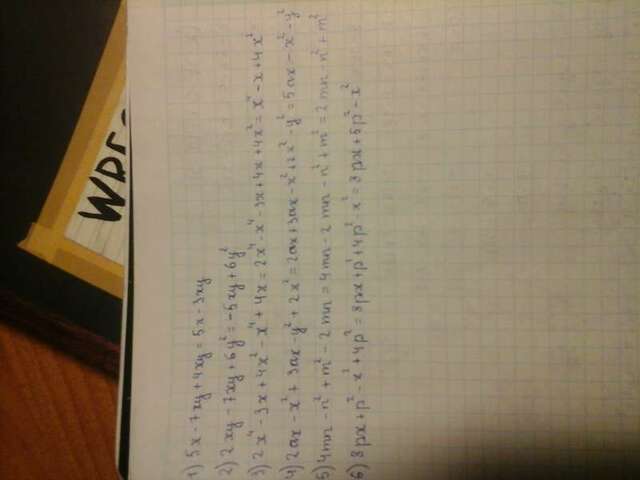 WRES
1) 5x - 7xy + 4xy = 5x - 3xy
2) 2xy - 7xy + 6y² = -5xy + 6y²
3) 2x⁴ - 3x + 4x² - x⁴ + 4x = 2x⁴ - x⁴ - 3x + 4x + 4x² = x⁴ - x + 4x²
4) 2ax - x² + 3ax - y² + 2x² = 2ax + 3ax - x² + 2x² - y² = 5ax - x² - y²
5) 4mn - n² + m² - 2mn = 4mn - 2mn - n² + m² = 2mn - n² + m²
6) 3px + p² - x² + 4p² = 3px + p² + 4p² - x² = 3px + 5p² - x²